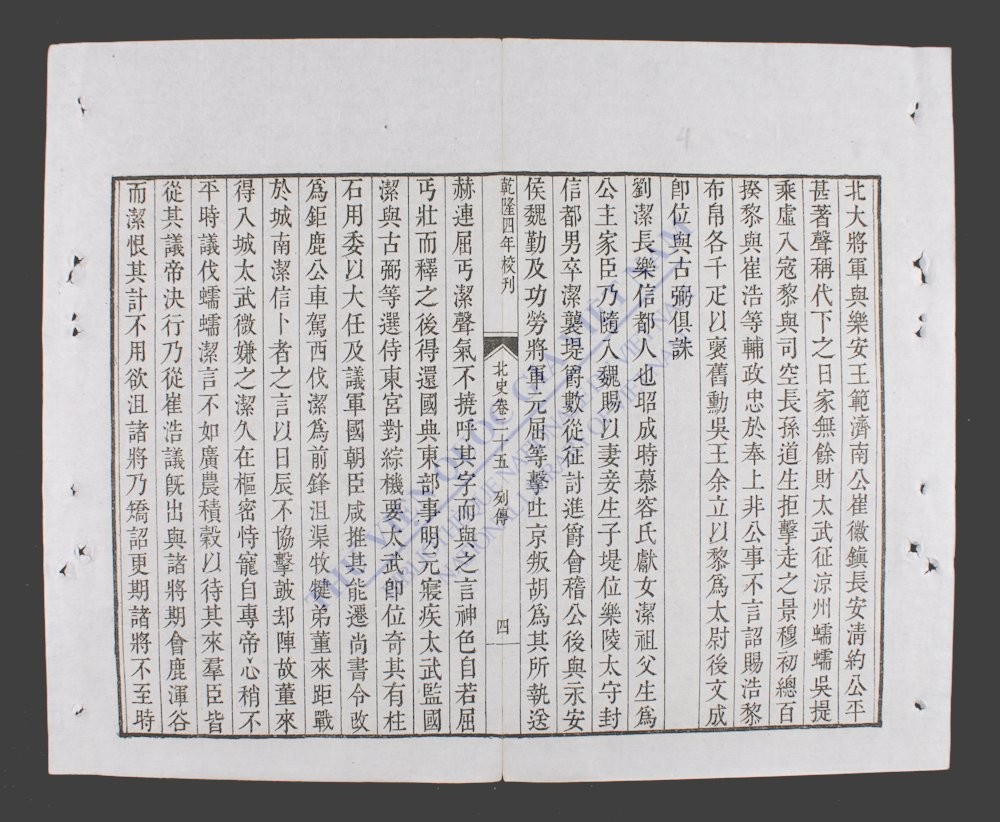 北大將軍與樂安王範濟南公崔徽鎭長安淸約公平
甚著聲稱代下之日家無餘財太武征涼州蠕蠕吳提
乘虛入寇黎與司空長孫道生拒擊走之景穆初總百
揆黎與崔浩等輔政忠於奉上非公事不言詔賜浩黎
布帛各千疋以襃舊勳吳王余立以黎爲太尉後文成
卽位與古弼俱誅
劉潔長樂信都人也昭成時慕容氏獻女潔祖父生爲
公主家臣乃隨入魏賜以妻妾生子堤位樂陵太守封
信都男卒潔襲堤爵數從征討進爵會稽公後與永安
侯魏勤及功勞將軍元屈等擊吐京叛胡爲其所執送
乾隆四年校刊
北史卷二十五 列傳
四
赫連屈丐潔聲氣不撓呼其字而與之言神色自若屈
丐壯而釋之後得還國典東部事明元寢疾太武監國
潔與古弼等選侍東宮對綜機要太武卽位奇其有柱
石用委以大任及議軍國朝臣咸推其能遷尚書令改
爲鉅鹿公車駕西伐潔爲前鋒沮渠牧犍弟董來距戰
於城南潔信卜者之言以日辰不協擊鼓却陣故董來
得入城太武微嫌之潔久在樞密恃寵自專帝心稍不
平時議伐蠕蠕潔言不如廣農積穀以待其來羣臣皆
從其議帝決行乃從崔浩議旣出與諸將期會鹿渾谷
而潔恨其計不用欲沮諸將乃矯詔更期諸將不至時
4
THƯ VIỆN QUỐC GIA VIỆT NAM
BIBLIOTHÈQUE NATIONALE DU VIETNAM
NATIONAL LIBRARY OF VIETNAM